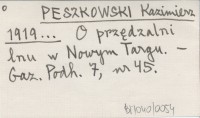 PESZKOWSKI Kazimierz
1919... O przędzalni
lnu w Nowym Targu. -
Gaz. Podh. 7, nr 45.